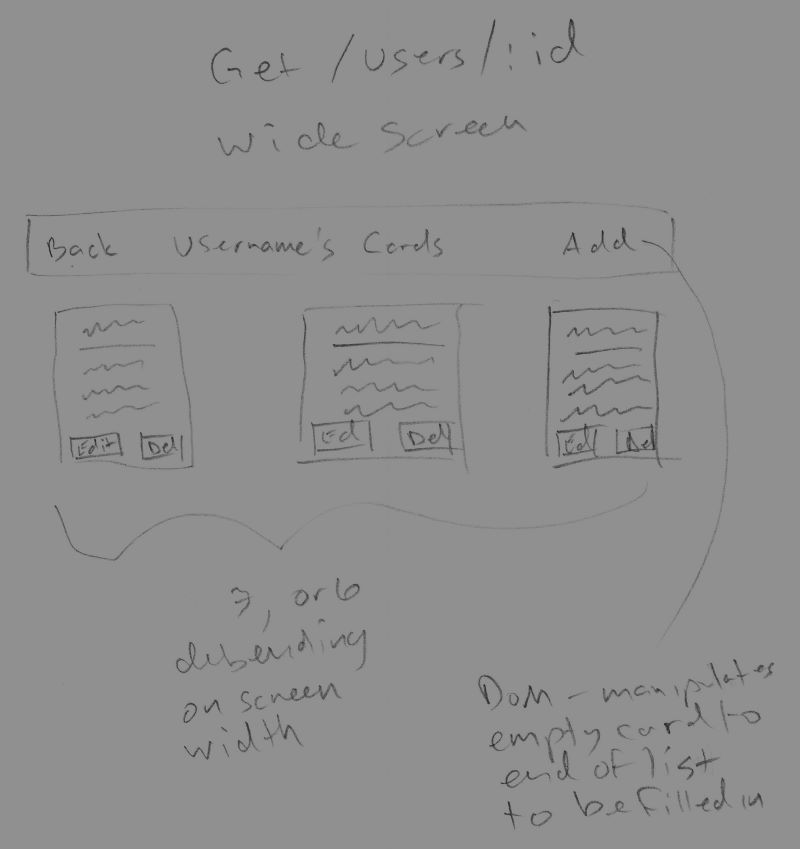 Get /users/:id
Wide Screen
Back Username's Cards Add
Edit Del
Ed Del
Ed Del
3, or 6
debending
on screen
width
DOM - manipulates
empty card to
end of list
to be filled in